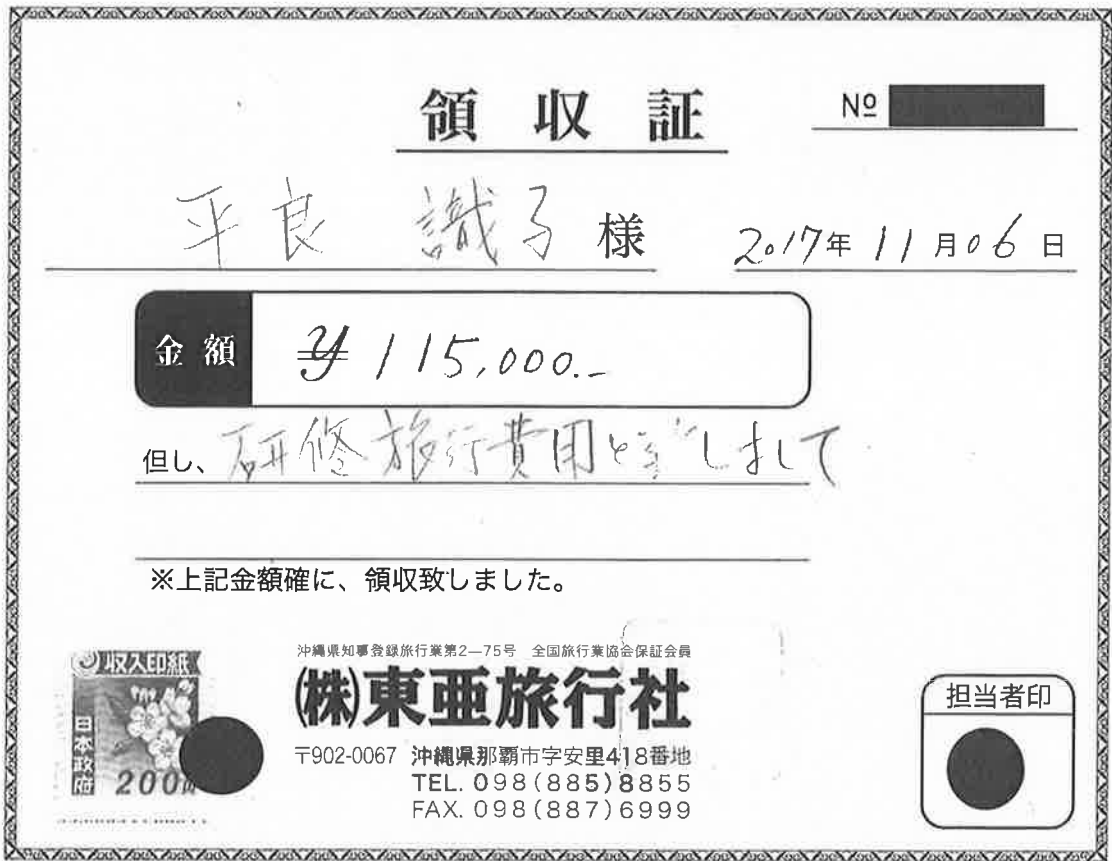 領収証
№
平良 識子 様
2017年11月06日
金額 ¥115,000.-
但し、研修旅行費用としまして
※上記金額確に、領収致しました。
収入印紙
日本政府
200円
沖縄県知事登録旅行業第2—75号 全国旅行業協会保証会員
(株)東亜旅行社
〒902-0067 沖縄県那覇市字安里418番地
TEL. 098(885)8855
FAX. 098(887)6999
担当者印